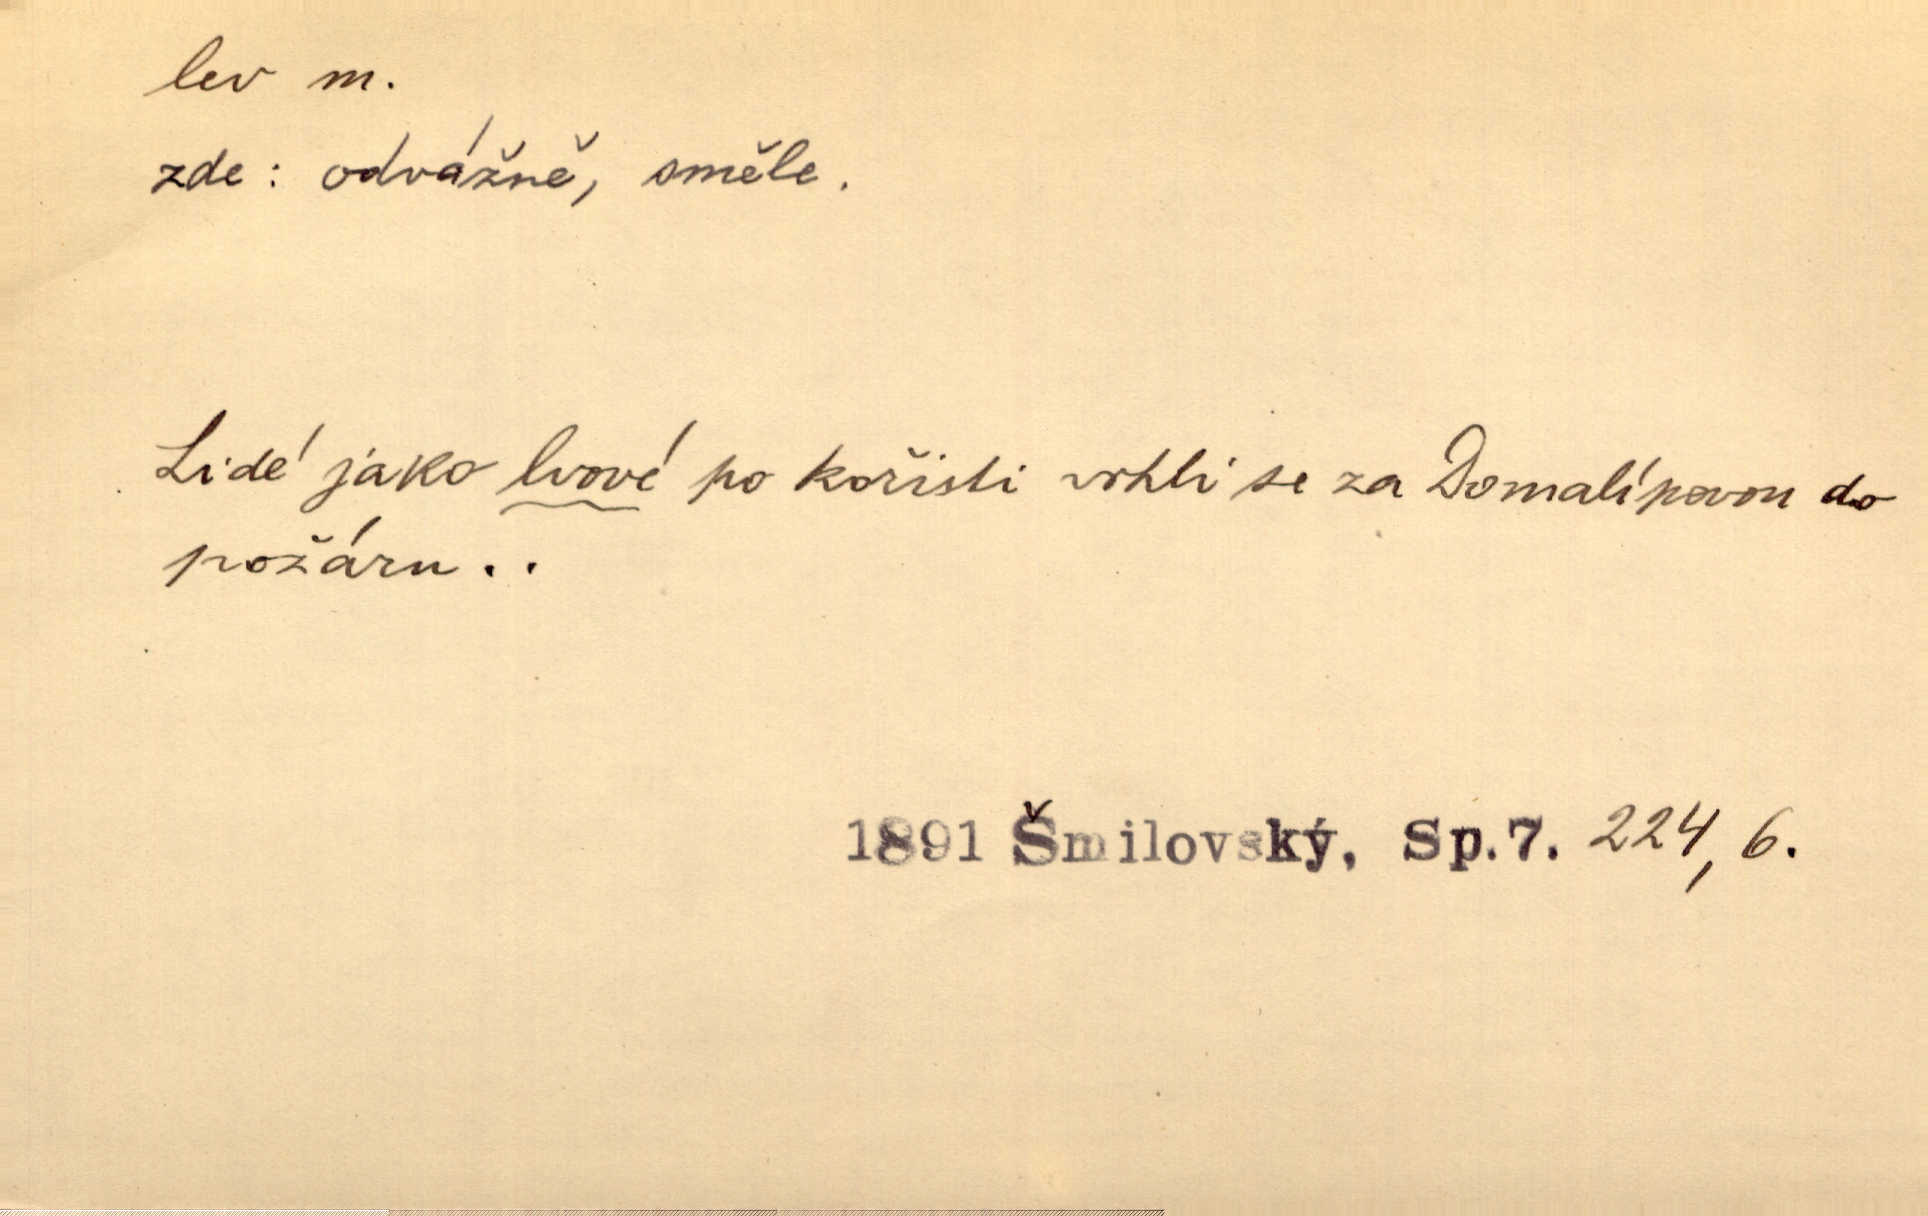 lev m.
zde: odvážně, směle.
Lidé jako lvové po kořisti vrhli se za Domalípovou do
požáru..
1891 Šmilovský, Sp.7. 224, 6.